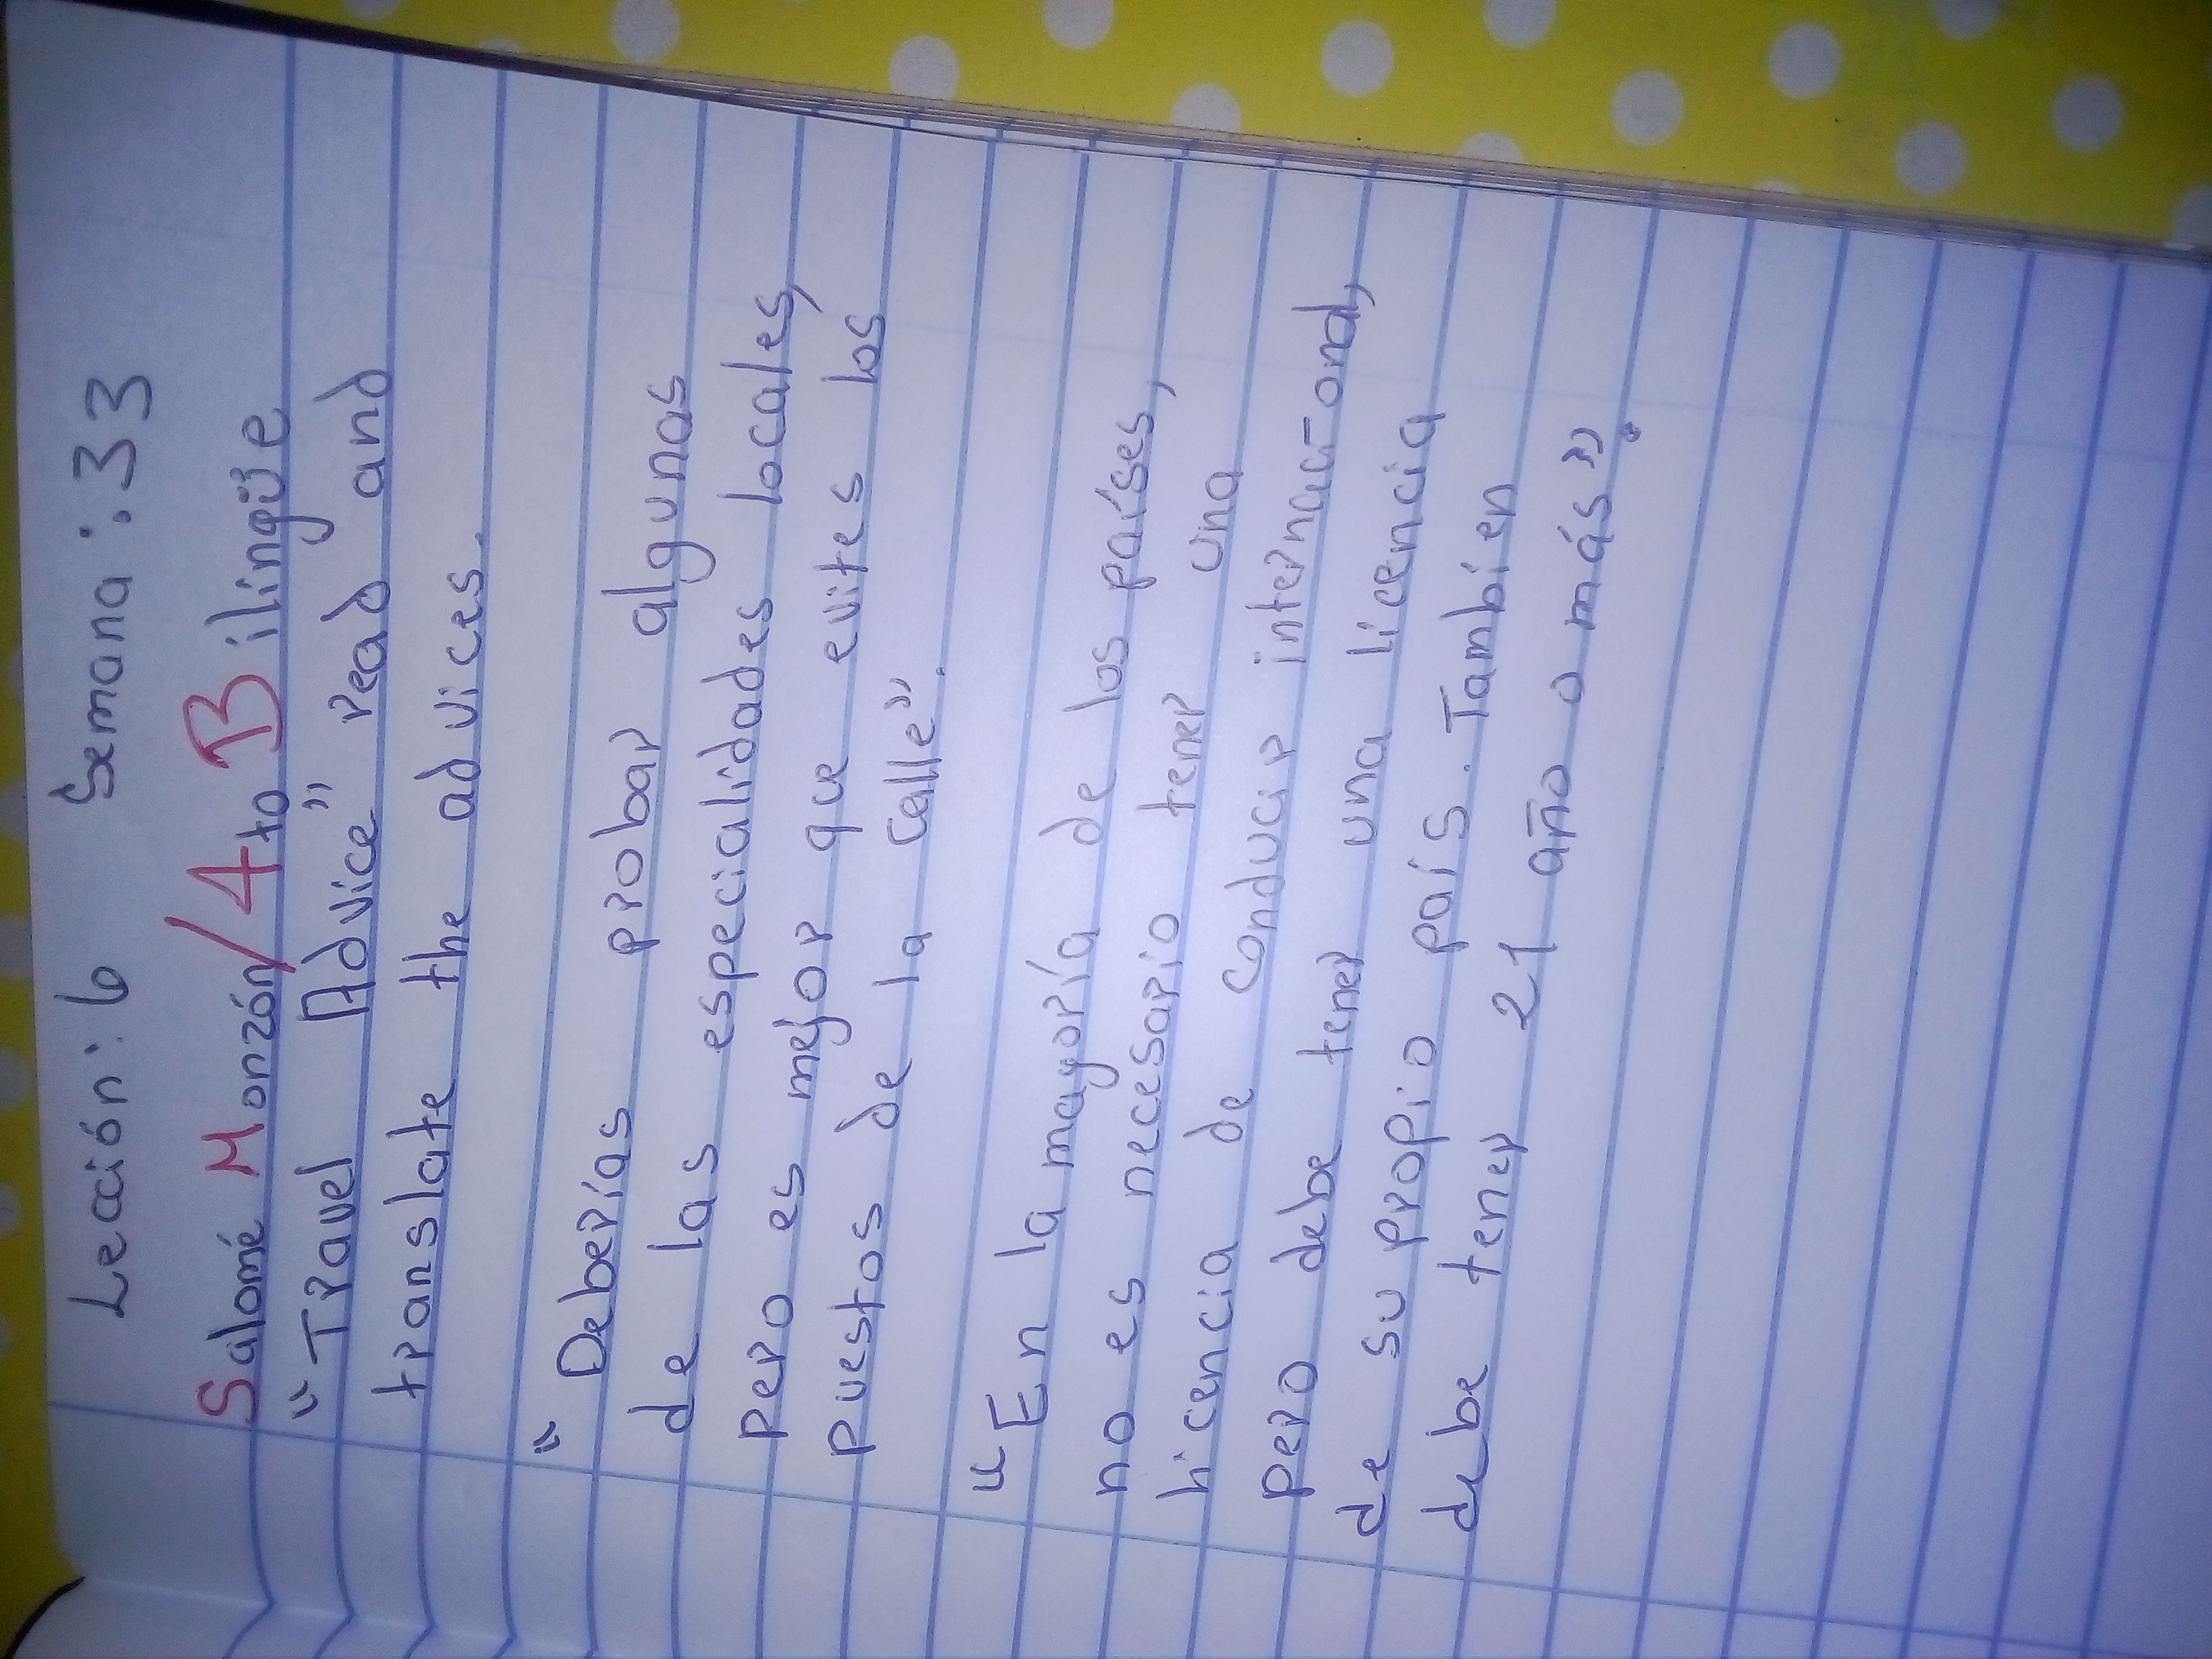 Lección: 6 Semana: 33
Salomé Monzón/4to Bilingüe
"Travel Advice" read and
translate the advices.
"Deberías probar algunas
de las especialidades locales,
pero es mejor que evites los
puestos de la calle".
"En la mayoría de los países,
no es necesario tener una
licencia de conducir internacional,
pero debe tener una licencia
de su propio país. Tambien
debe tener 21 año o más".